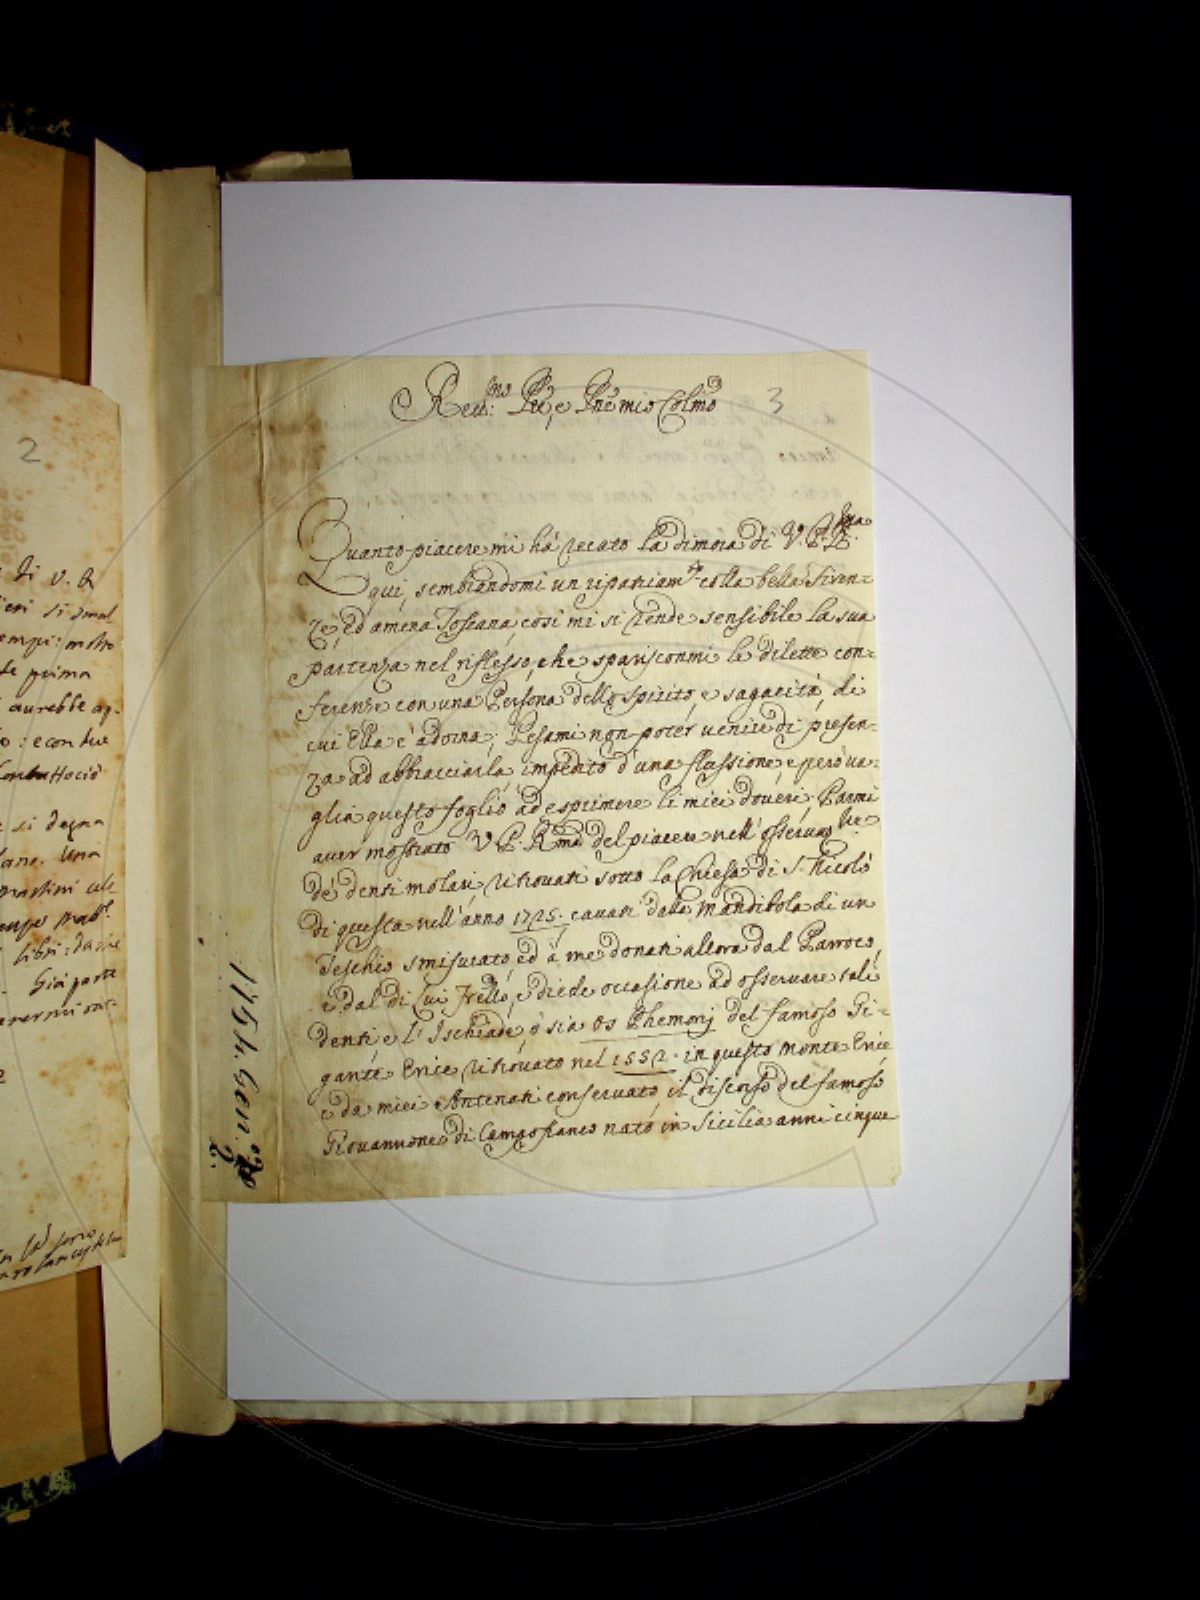 2
di V. R
ieri si smal
te prima
aurebbe ap-
si degna
Una
libri: da me
Già parte
3
Reu:mo Pre, e Prne mio Colmo
Quanto piacere mi hà recato la dimora di V. P. Rma
qui, sembrandomi un ripatriamto colla bella Firen=
ze, ed amena Toscana, così mi si rende sensibile la sua
partenza nel riflesso, che sparisconmi le dilette con=
ferenze con una Persona dello spirito, e sagacità di
cui Ella è adorna; Pesami non poter venire di presen=
za ad abbracciarla, impedito d'una flussione, e però va=
glia questo foglio ad esprimere li miei doveri. Parmi
aver mostrato V. P. Rma del piacere nell'osservazne
de' denti molari ritrovati sotto la Chiesa di S. Nicolò
di questa nell'anno 1725. cavati dalla mandibola di un
Teschio smisurato, ed à me donati allora dal Parroco,
e dal di lui Frello, e diede occasione ad osservare tali
denti e l'Ischiade, ò sia os Phemorij del famoso Gi=
gante Erice ritrovato nel 1552. in questo monte Erice
e da miei Antenati conservato il discorso del famoso
Giovannone di Campofranco nato in Sicilia anni cinque
1754. Gen.o
2.